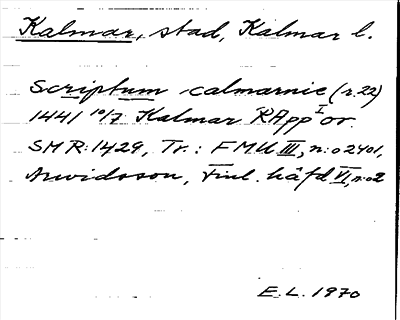 Kalmar, stad, Kalmar l.
Scriptum calmarnie (r.22)
1441 10/7 Kalmar RApp I or.
SMR: 1429, Tr.: FMU III, n:o 2401,
Arwidsson, Finl. häfd VI, n:o 2
E.L. 1970